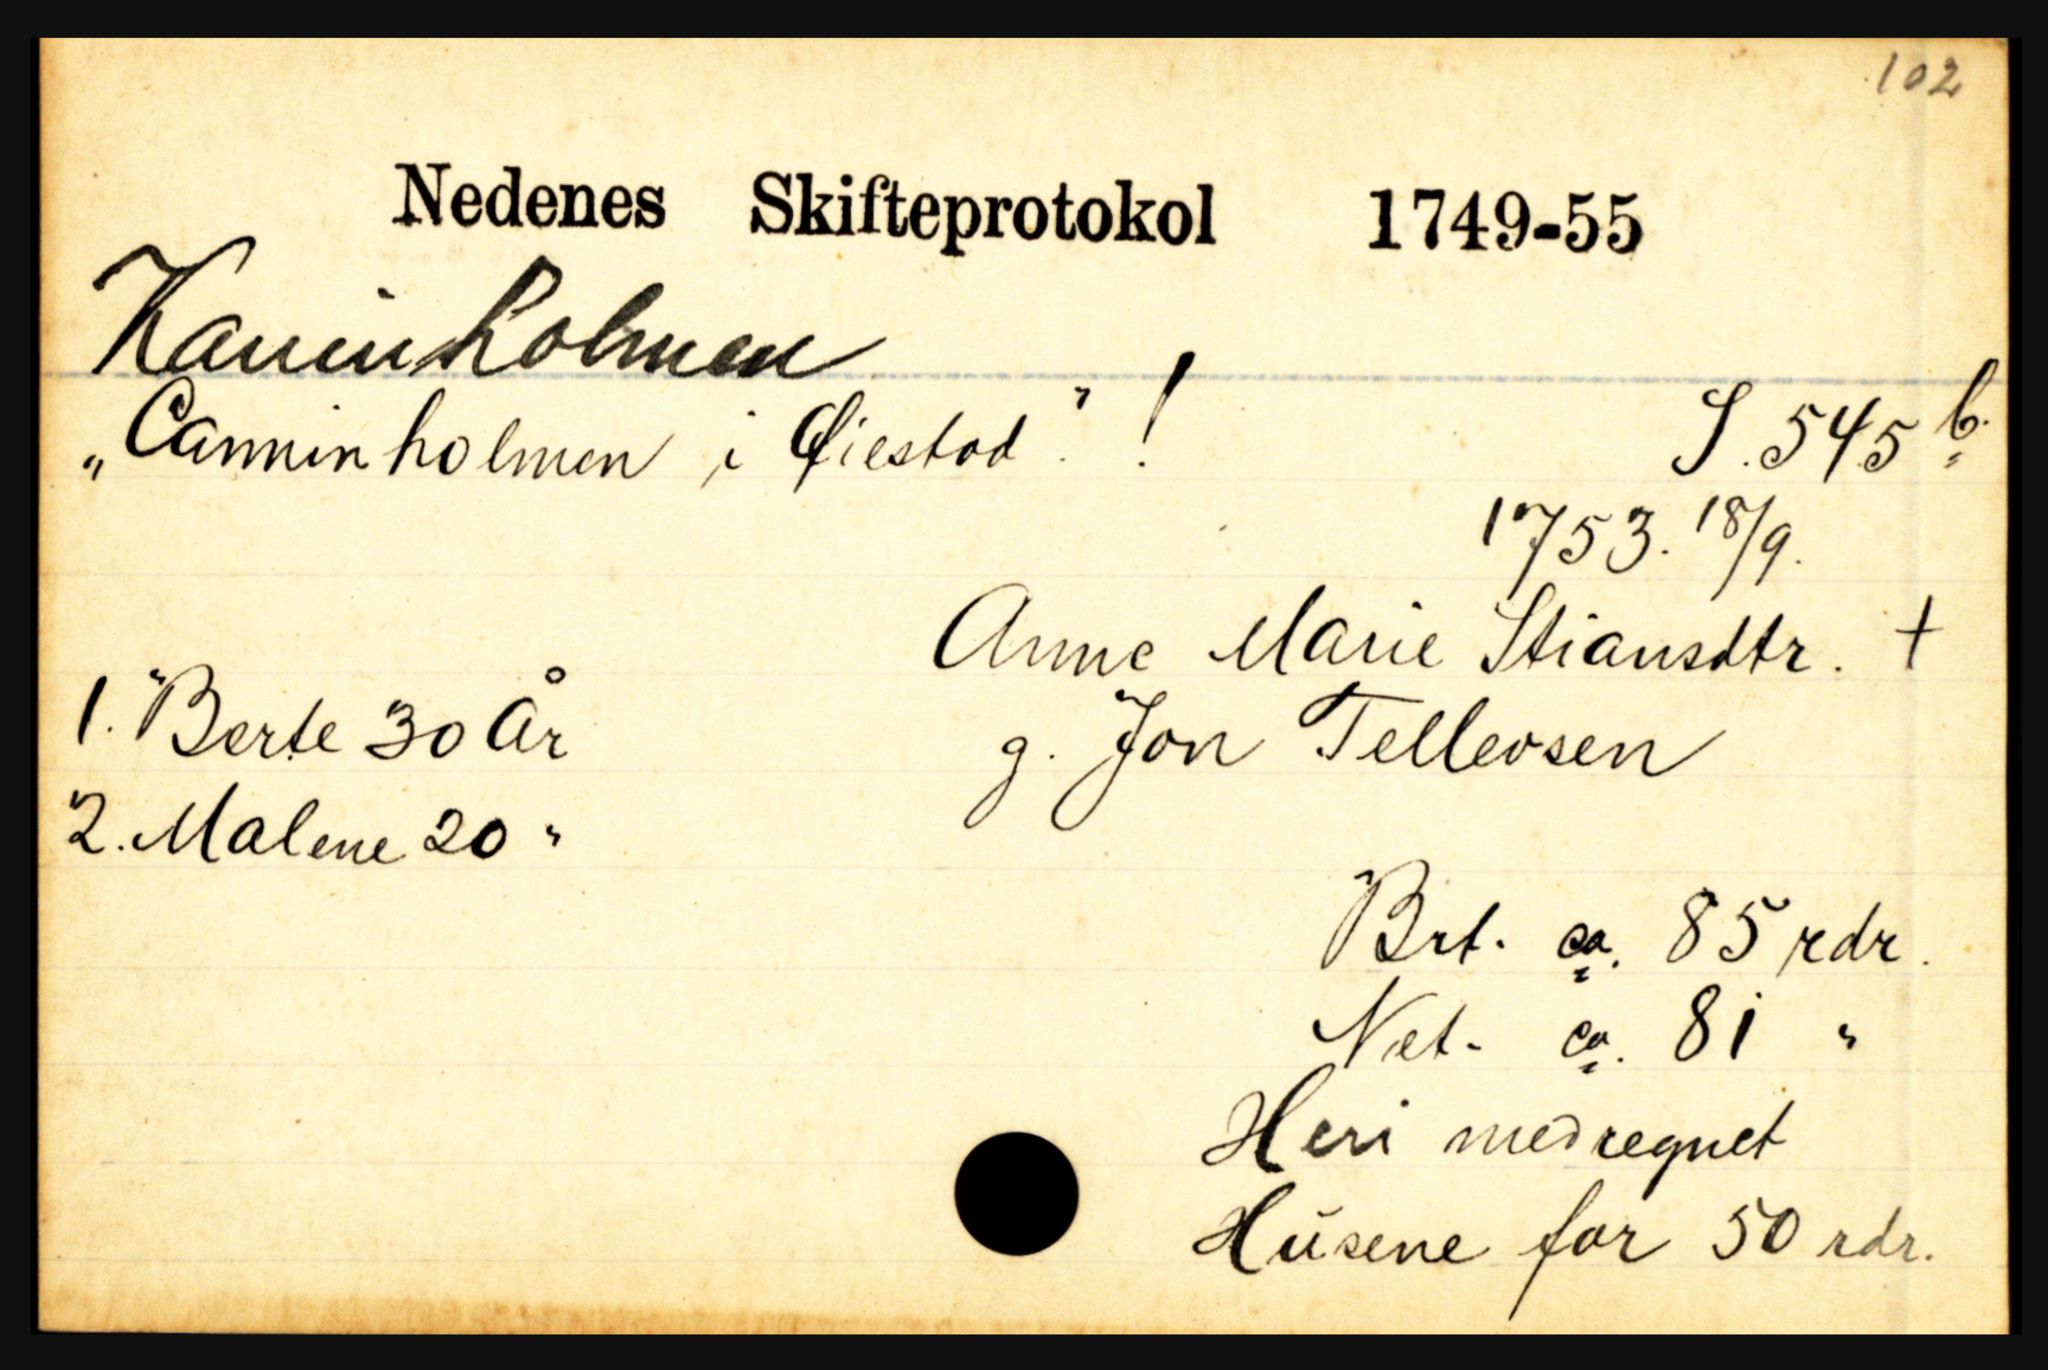 102
Nedenes Skifteprotokol 1749-55
Kaninholmen
„Canninholmen i Øiestad." !
S. 545 b.
1753. 18/9.
Anne Marie Stiansdtr. +
1. Berte 30 År
g. Jon Tellevsen
2. Malene 20 "
Brt. ca. 85 rdr.
Net. ca. 81 "
Heri medregnet
Husene for 50 rdr.